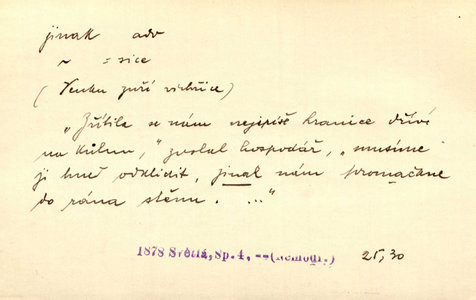 jinak adv
~ = sice
(Venku zuří vichřice)
„Zřítila se nám nejspíš hranice dříví
na kůlnu," zvolal hospodář, „musíme
ji hned odklidit, jinak nám promáčkne
do rána stěnu. ..."
1878 Světlá, Sp. 4, -- (Nemodl.) 25,30